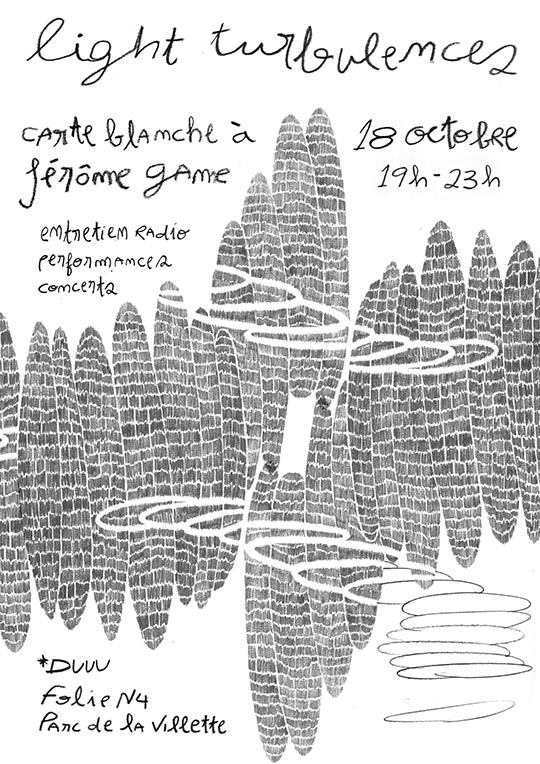 light turbulences
carte blanche à
Jérôme Game
18 octobre
19h-23h
entretien radio
performances
concerts
*DUUU
Folie N4
Parc de la Villette